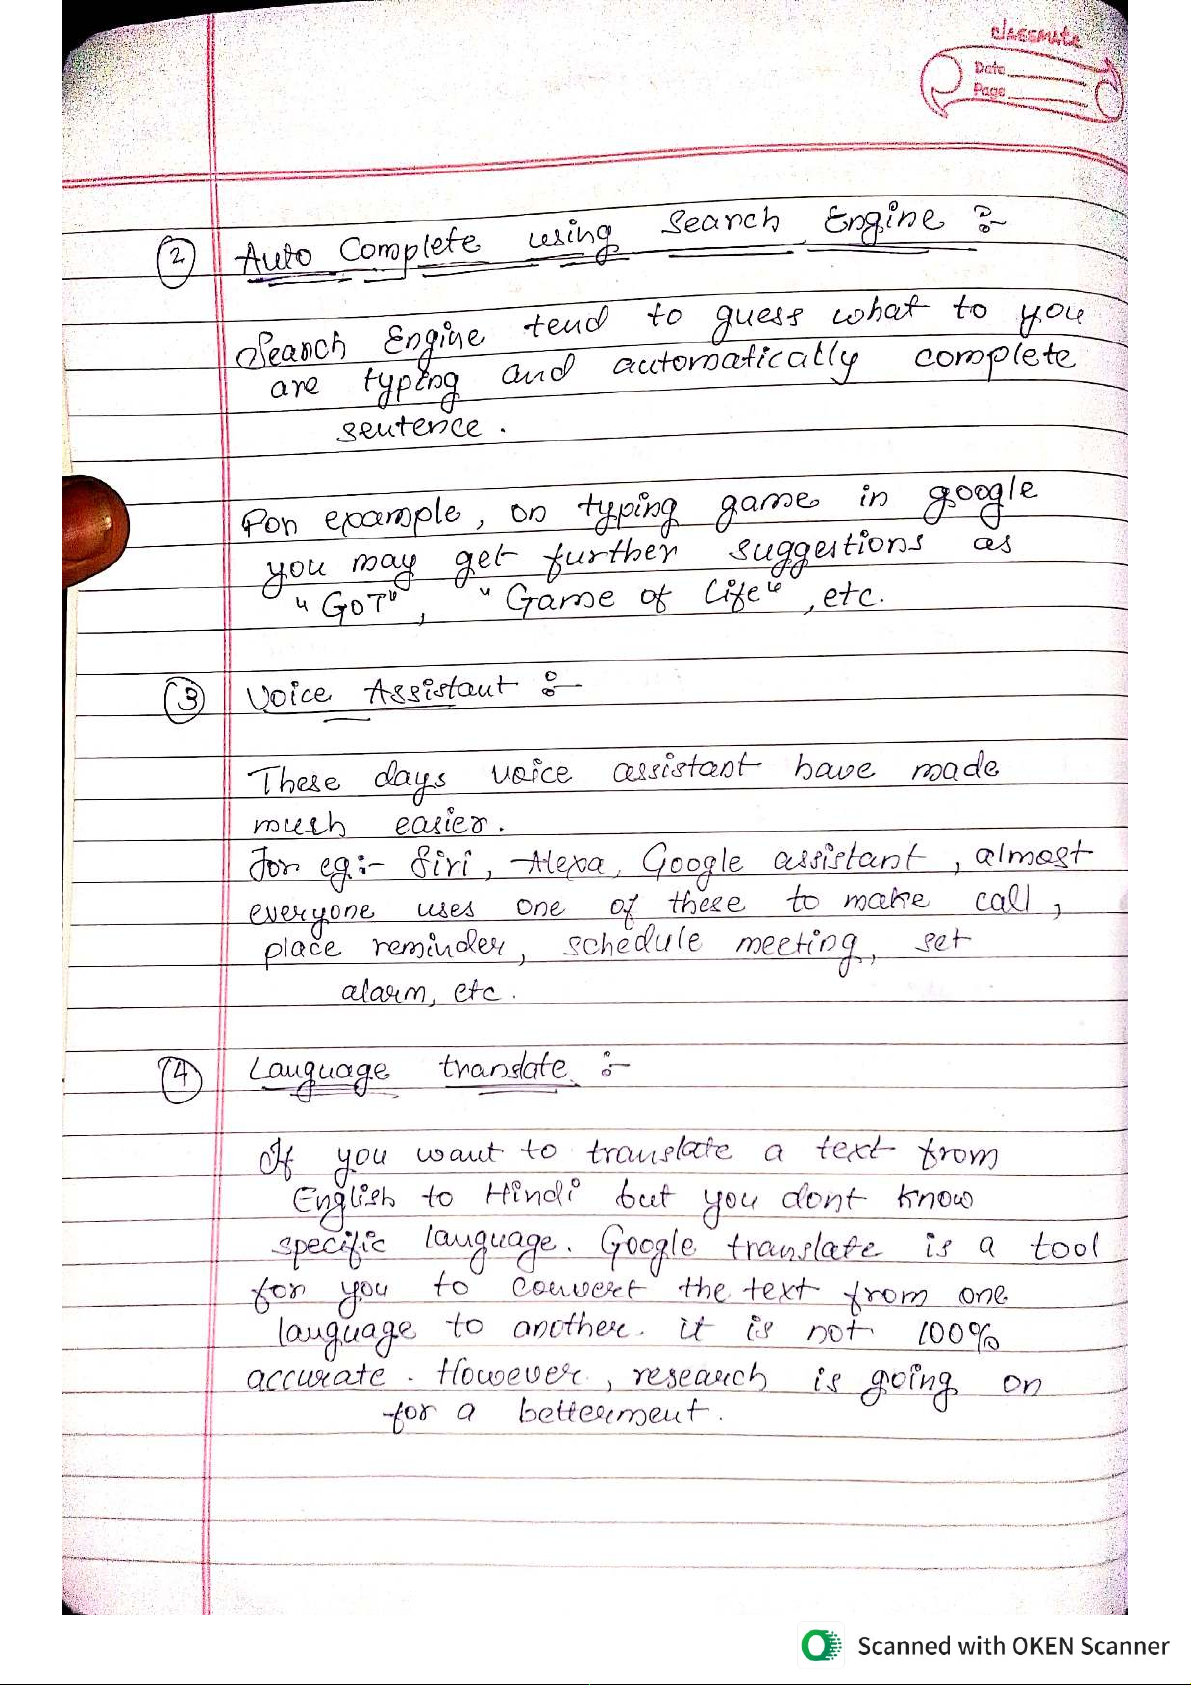 classmate
Date
Page
2 Auto Complete using Search Engine :-
Search Engine tend to guess what to you
are typing and automatically complete
sentence.
For example, on typing game in google
you may get further suggestions as
"GOT", "Game of Life", etc.
3 Voice Assistant :-
These days voice assistant have made
much easier.
for eg:- Siri, Alexa, Google assistant, almost
everyone uses one of these to make call,
place reminder, schedule meeting, set
alarm, etc.
4 Language translate :-
If you want to translate a text from
English to Hindi but you dont know
specific language. Google translate is a tool
for you to convert the text from one
language to another. it is not 100%
accurate. However, research is going on
for a betterment.
Scanned with OKEN Scanner